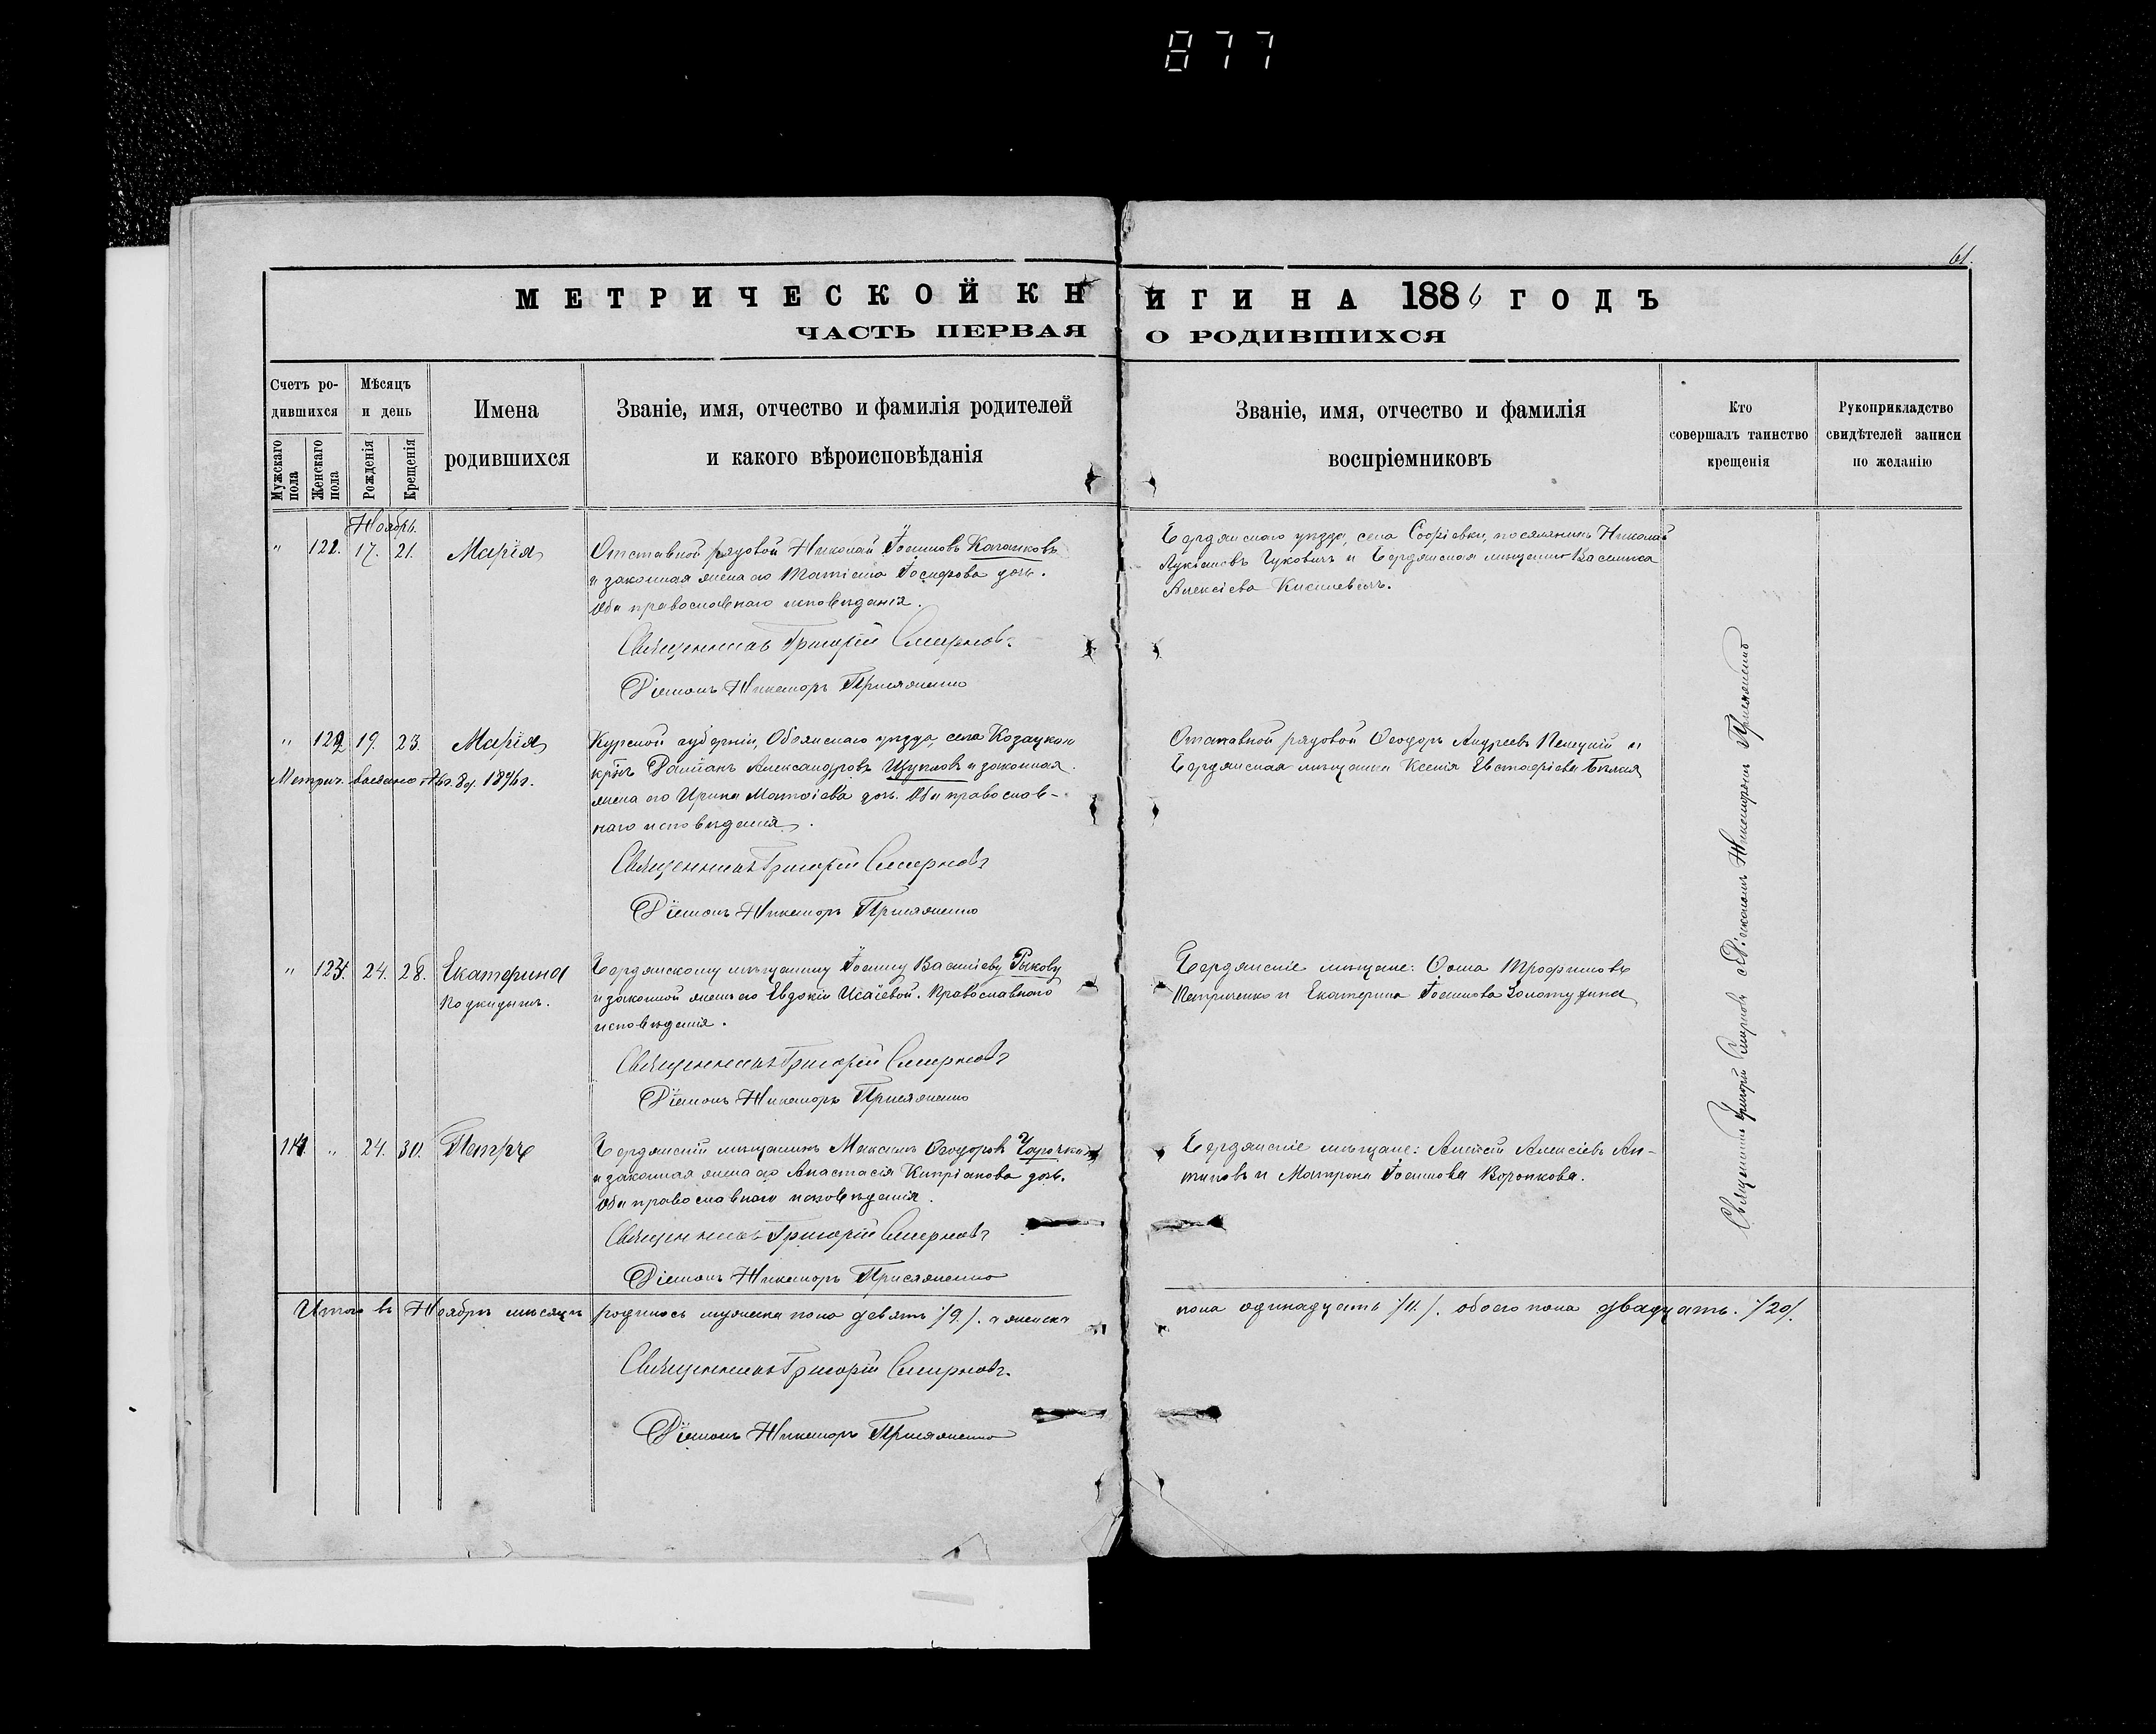 877
61.
МЕТРИЧЕСКОЙ КНИГИ НА 1886 ГОДЪ
ЧАСТЬ ПЕРВАЯ О РОДИВШИХСЯ
Счетъ ро-
дившихся
Мужскаго пола
Женскаго пола
Мѣсяцъ
и день
Рожденія
Крещенія
Имена
родившихся
Званіе, имя, отчество и фамилія родителей
и какого вѣроисповѣданія
Званіе, имя, отчество и фамилія
воспріемниковъ
Кто
совершалъ таинство
крещенія
Рукоприкладство
свидѣтелей записи
по желанію
Ноябрь.
" 17. 21. Марія
Отставной рядовой Николай Іоанновъ
и законная жена его Іосифова дочь.
Оба православнаго исповѣданія.
Священникъ Григорій Смирновъ.
Діаконъ Никаноръ Присяженко
Бердянскаго уѣзда, села Софіевки, поселянинъ Николай
и Бердянская мѣщанка Василиса
Алексіева
" 122 19. 23. Марія
Метрич. 8 1896 г.
Курской губерніи, Обоянскаго уѣзда, села
крѣ Александровъ Щугловъ и законная
жена его Ирина Матѳіева дочь. Оба православ-
наго исповѣданія.
Священникъ Григорій Смирновъ
Діаконъ Никаноръ Присяженко
Отставной рядовой Ѳеодоръ Андреевъ и
Бердянская мѣщанка Ксенія Евстафіева Бѣлая
" 123. 24. 28. Екатерина
подкидышъ.
Бердянскому мѣщанину Іоанну Васильеву Рыкову
и законной женѣ его Евдокіи Исаіевой. Православнаго
исповѣданія.
Священникъ Григорій Смирновъ
Діаконъ Никаноръ Присяженко
Бердянскіе мѣщане: Ѳома Трофимовъ
Петриченко и Екатерина Іоаннова Золотухина
114. " 24. 30. Петръ
Бердянскій мѣщанинъ Максимъ Ѳеодоровъ
и законная жена его Анастасія Кипріанова дочь.
Оба православнаго исповѣданія.
Священникъ Григорій Смирновъ
Діаконъ Никаноръ Присяженко
Бердянскіе мѣщане: Алексій Алексіевъ Ан-
типовъ и Матрона Іоаннова Воронкова.
Священникъ Григорій Смирновъ съ Діакономъ Присяженко
Итого въ Ноябрѣ мѣсяцѣ родилось мужеска пола девять /9/. а женска
пола одинадцать /11./. обоего пола двадцать. /20/.
Священникъ Григорій Смирновъ.
Діаконъ Никаноръ Присяженко